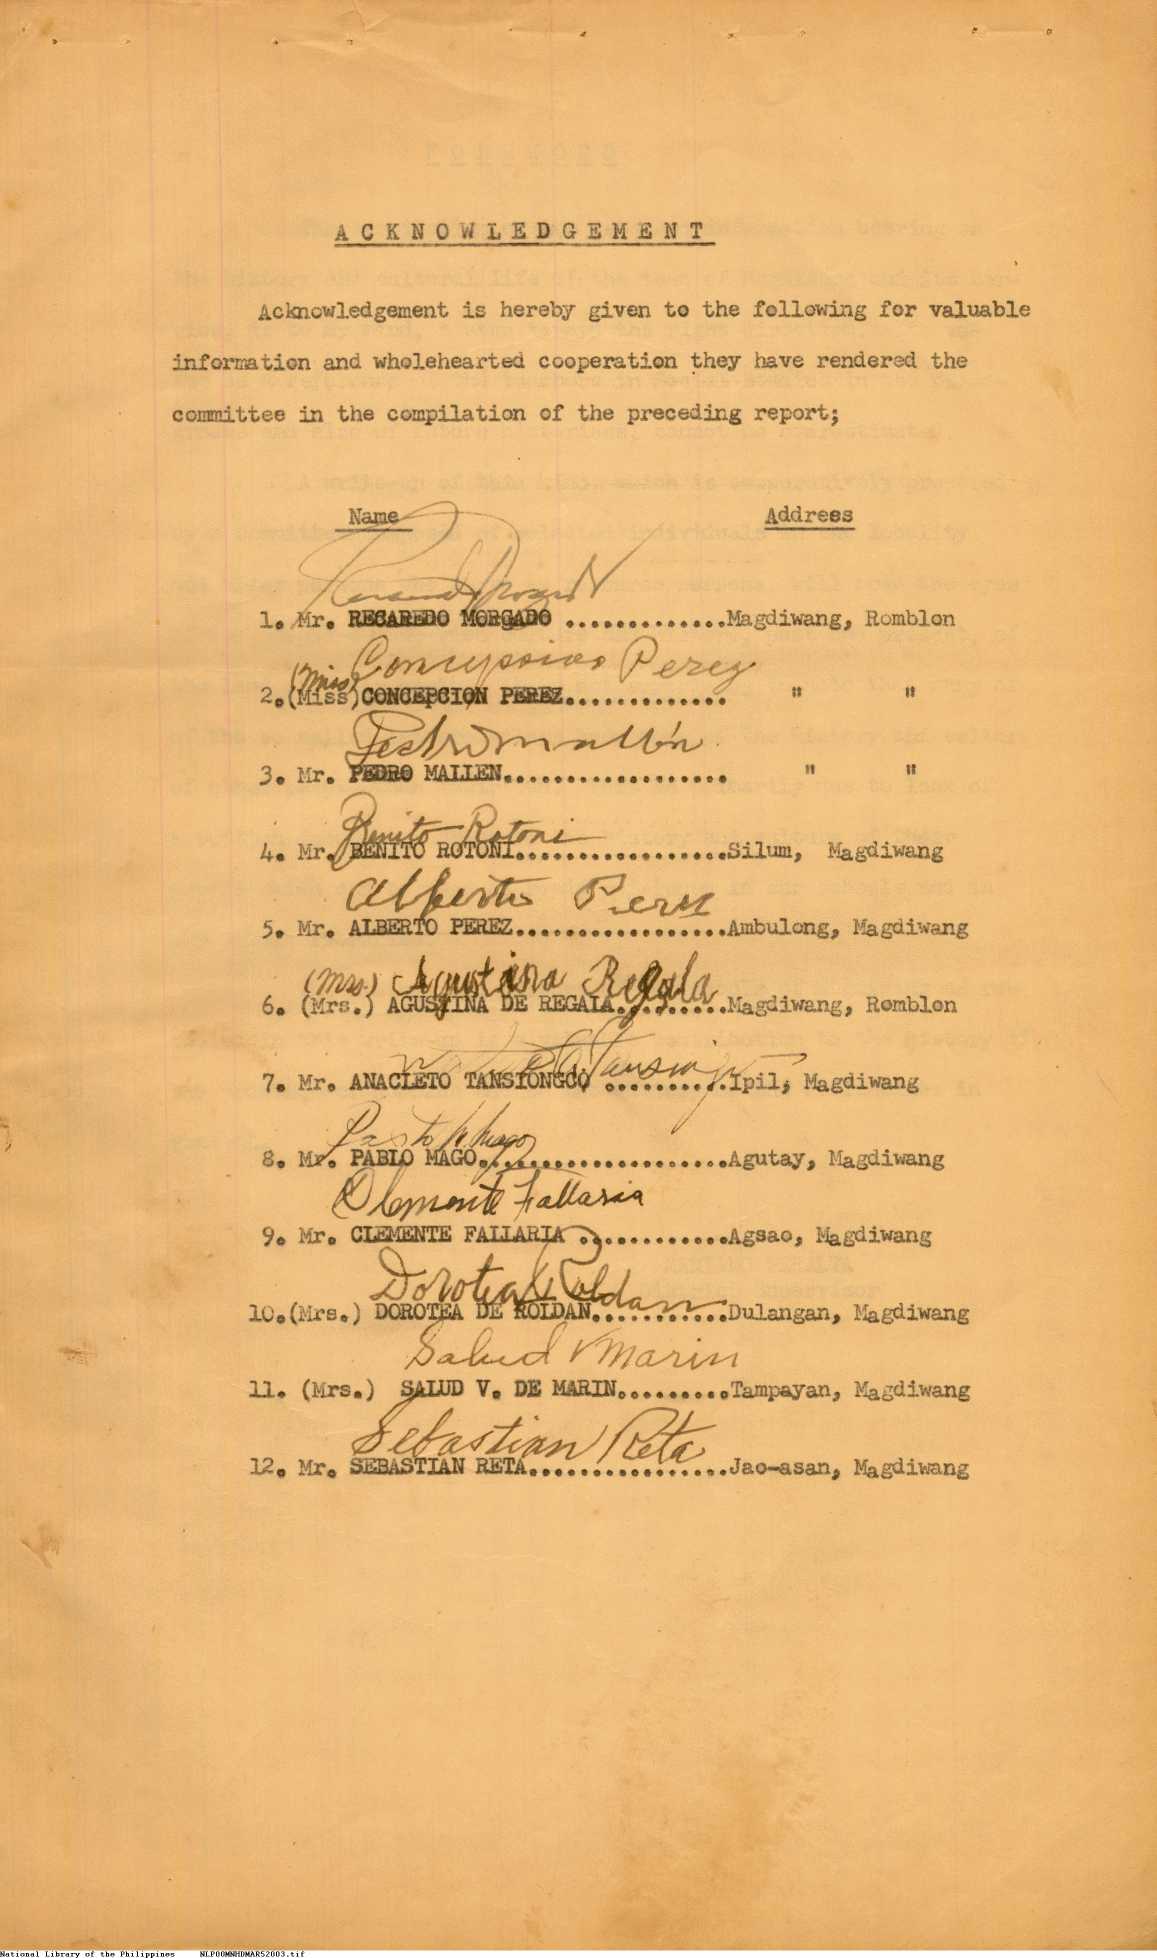 ACKNOWLEDGEMENT
Acknowledgement is hereby given to the following for valuable
information and wholehearted cooperation they have rendered the
committee in the compilation of the preceding report;
Name Address
1. Mr. RECAREDO MORGADO .............Magdiwang, Romblon
Concepcion Perez
(Miss)
2.(Miss)CONCEPCION PEREZ............. " "
Pedro Mallén
3. Mr. PEDRO MALLEN.................. " "
Benito Rotoni
4. Mr. BENITO ROTONI.................Silum, Magdiwang
Alberto Perez
5. Mr. ALBERTO PEREZ.................Ambulong, Magdiwang
(Mrs.) Agustina Regala
6. (Mrs.) AGUSTINA DE REGALA.........Magdiwang, Romblon
Tansiongco
7. Mr. ANACLETO TANSIONGCO ..........Ipil, Magdiwang
8. Mr. PABLO MAGO....................Agutay, Magdiwang
Clemente Fallaria
9. Mr. CLEMENTE FALLARIA ............Agsao, Magdiwang
Dorotea Roldan
10.(Mrs.) DOROTEA DE ROLDAN...........Dulangan, Magdiwang
Salud V Marin
11. (Mrs.) SALUD V. DE MARIN.........Tampayan, Magdiwang
Sebastian Reta
12. Mr. SEBASTIAN RETA................Jao-asan, Magdiwang
National Library of the Philippines NLPOOMNHDMAR52003.tif